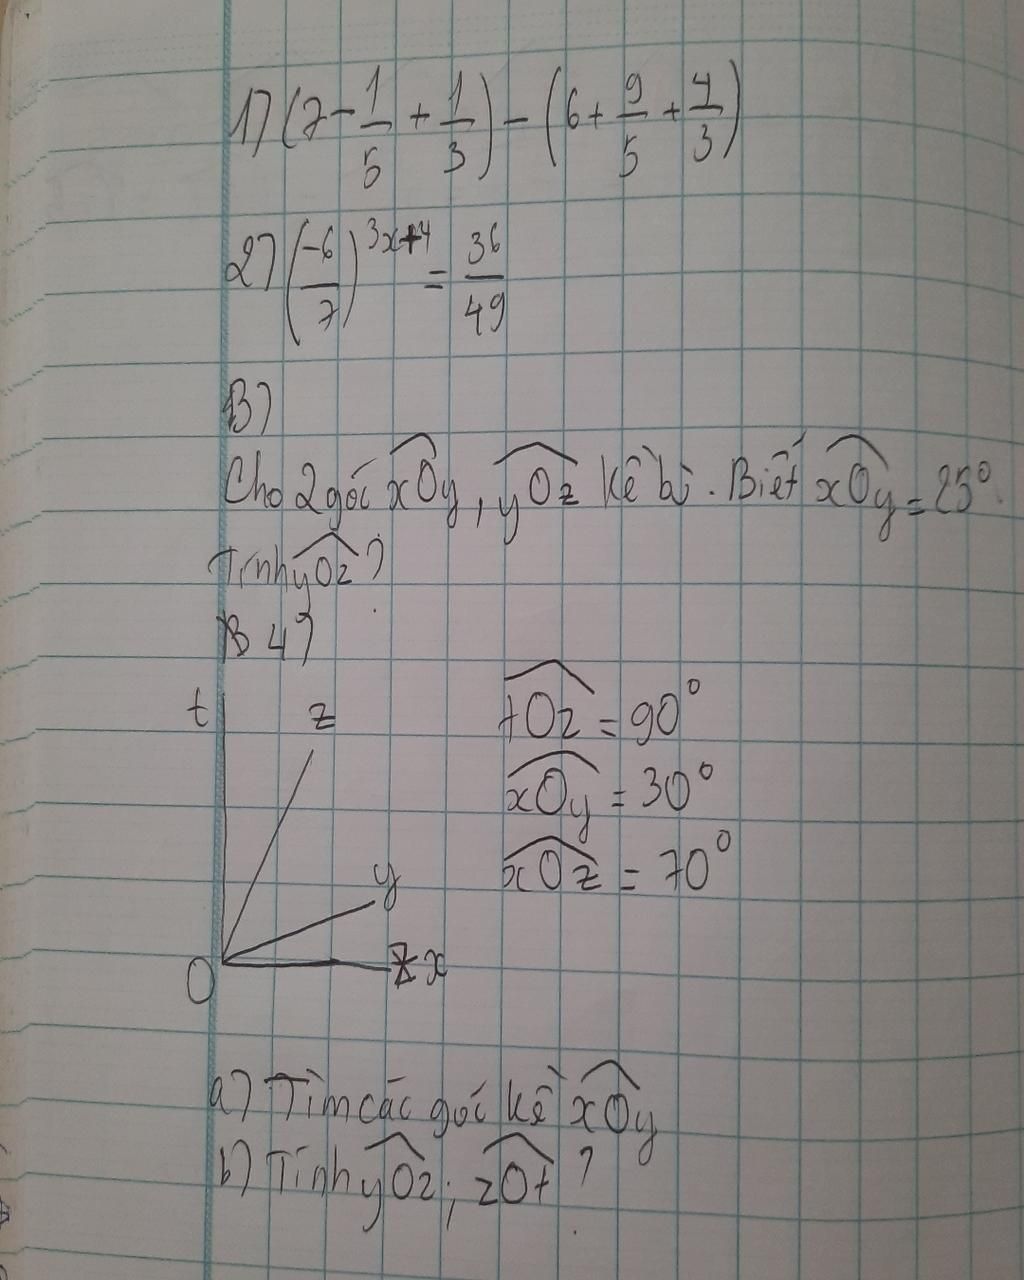 1) (7 - 1/5 + 1/3) - (6 + 9/5 + 4/3)
2) (-6/7)^(3x+4) = 36/49
B)
Cho 2 góc xOy, yOz kề bù. Biết xOy = 25°.
Tính yOz?
B 4)
t
z
tOz = 90°
xOy = 30°
xOz = 70°
y
O
x
a) Tìm các góc kề xOy
b) Tính yOz; zOt?